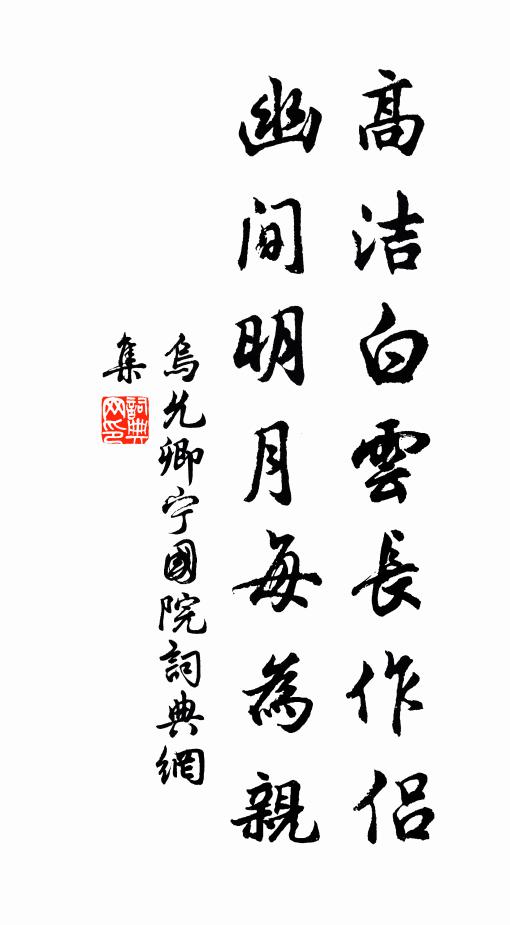 高洁白雲長作侣
幽间明月每為親
烏允卿宁國院詞典網
集
詞典網印